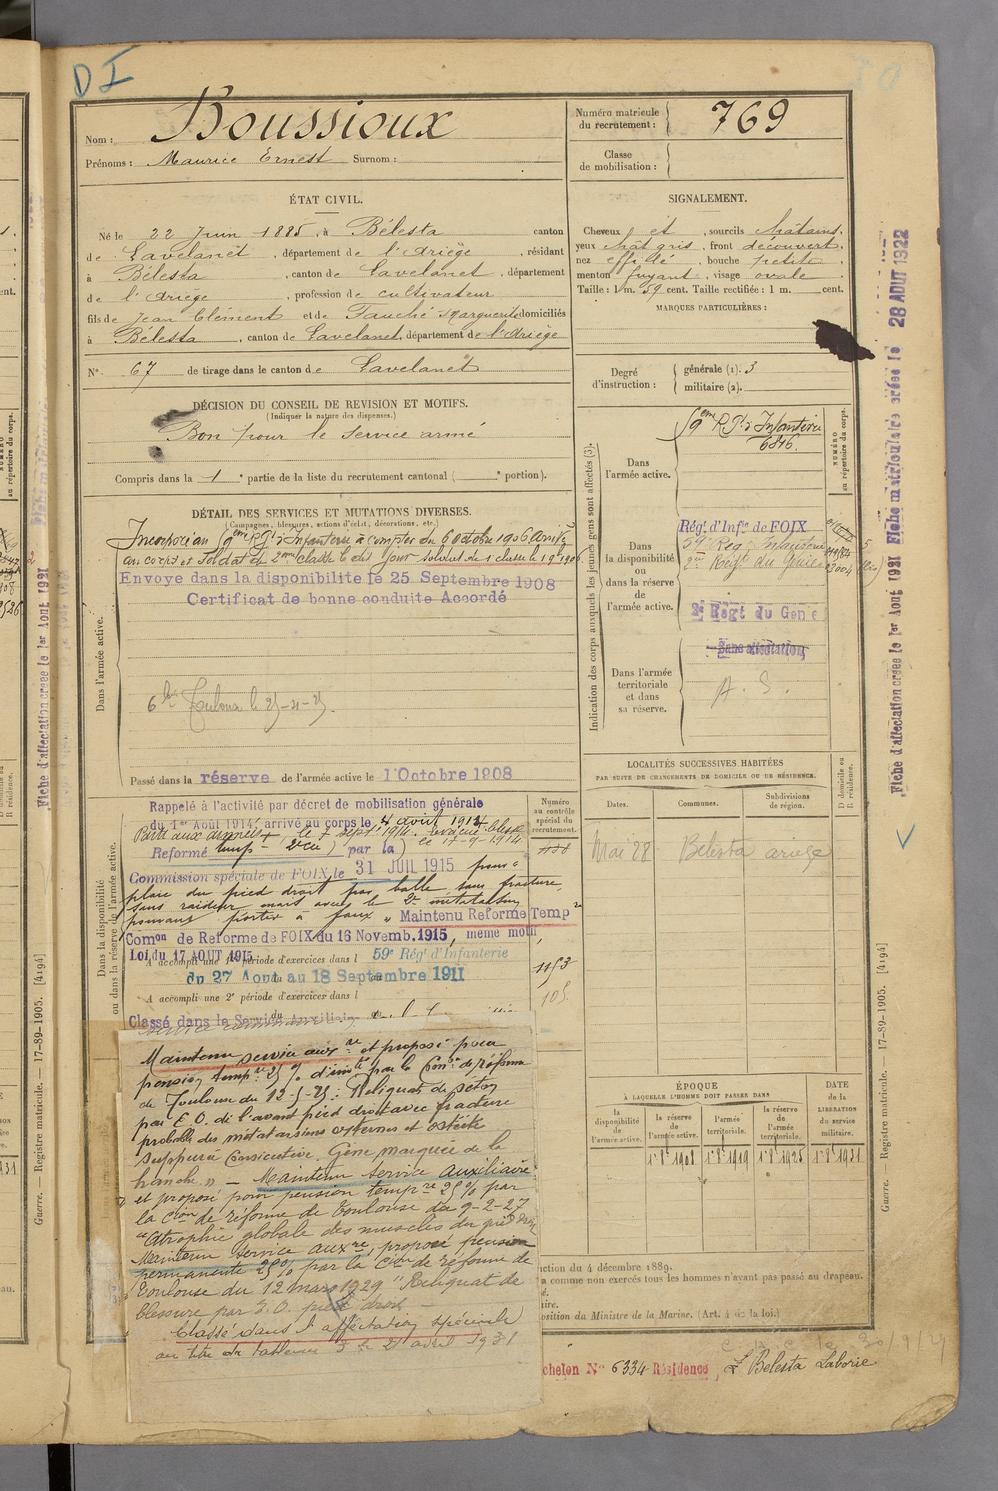 D I
Nom : Boussioux
Prénoms : Maurice Ernest Surnom :
Numéro matricule du recrutement : 769
Classe de mobilisation :
ÉTAT CIVIL.
Né le 22 Juin 1885, à Bélesta canton
de Lavelanet, département de l'Ariège, résidant
à Bélesta, canton de Lavelanet, département
de l'Ariège, profession de cultivateur
fils de Jean Clément et de Fauché Marguerite domiciliés
à Bélesta, canton de Lavelanet, département de l'Ariège
N° 67 de tirage dans le canton de Lavelanet
SIGNALEMENT.
Cheveux et, sourcils châtains,
yeux chât gris, front découvert,
nez effilé, bouche petite,
menton fuyant, visage ovale
Taille : 1 m. 59 cent. Taille rectifiée : 1 m. cent.
MARQUES PARTICULIÈRES :
Degré d'instruction : générale (1). 3
militaire (2).
DÉCISION DU CONSEIL DE REVISION ET MOTIFS.
(Indiquer la nature des dispenses.)
Bon pour le service armé
Compris dans la 1e partie de la liste du recrutement cantonal ( e portion).
DÉTAIL DES SERVICES ET MUTATIONS DIVERSES.
(Campagnes, blessures, actions d'éclat, décorations, etc.)
Dans l'armée active.
Incorporé au 59eme Rgt d'Infanterie à compter du 6 octobre 1906 Arrivé
au corps et Soldat de 2eme classe le dit jour
Envoye dans la disponibilite le 25 Septembre 1908
Certificat de bonne conduite Accordé
Toulouse le
Passé dans la réserve de l'armée active le 1 Octobre 1908
Dans la disponibilité ou dans la réserve de l'armée active.
Rappelé à l'activité par décret de mobilisation générale
du 1er Août 1914, arrivé au corps le 4 août 1914
Parti aux armées le 7 sept 1914. le 17-9-1914
Reformé temp par la
Commission spéciale de FOIX, le 31 JUIL 1915 pour :
plaie du pied droit par balle, sans fracture,
sans raideur mais avec le 2e métatarsien
pouvant porter à faux » Maintenu Reforme Temp
Com on de Reforme de FOIX du 16 Novemb. 1915, meme motif
Loi du 17 AOUT 1915
A accompli une 1e période d'exercices dans l 59e Rég' d'Infanterie
du 27 Aout au 18 Septembre 1911
A accompli une 2e période d'exercices dans l
Classé dans le Service Auxiliaire
Maintenu service auxre et proposé pour
pension tempre 25 % d'invté par la Comon de réforme
de Toulouse du 12-5-25 : Reliquat de séton
par E.O. de l'avant pied droit avec fracture
probable des métatarsiens externes et ostéite
suppurée consécutive. Gêne marquée de la
hanche » — Maintenu service auxiliaire
et proposé pour pension tempre 25 % par
la Cion de réforme de Toulouse du 9-2-27
"Atrophie globale des muscles du pied droit
Maintenu service auxre, proposé pension
permanente 25 % par la Cion de réforme de
Toulouse du 12 mars 1929 "Reliquat de
blessure par E.O. pied droit
Classé dans l'affectation spéciale
au titre du tableau 3 le 21 avril 1931
Indication des corps auxquels les jeunes gens sont affectés (3).
NUMÉRO au répertoire du corps.
Dans l'armée active.
59eme Rgt d'Infanterie
6846.
Dans la disponibilité ou dans la réserve de l'armée active.
Régt d'Infie de FOIX
59e Reg Infanterie
2e Régt du Génie
2e Régt du Genie
Dans l'armée territoriale et dans sa réserve.
Sans affectation
A. S.
LOCALITÉS SUCCESSIVES HABITÉES
PAR SUITE DE CHANGEMENTS DE DOMICILE OU DE RÉSIDENCE.
Numéro au contrôle spécial du recrutement.
Dates. Communes. Subdivisions de région. D domicile ou R résidence.
Mai 28 Belesta ariege
1153
105
ÉPOQUE
À LAQUELLE L'HOMME DOIT PASSER DANS
la disponibilité de l'armée active.
la réserve de l'armée active.
l'armée territoriale.
la réserve de l'armée territoriale.
DATE de la LIBÉRATION du service militaire.
1r 8e 1908 1r 8e 1919 1r 8e 1925 1r 8e 1931
ction du 4 décembre 1889.
a comme non exercés tous les hommes n'ayant pas passé au drapeau.
é.
ire.
osition du Ministre de la Marine. (Art. 4 de la loi.)
chelon N° 6334 Résidence, Belesta Laborie
Fiche d'affectation créée le 1er Aout 1921 Fiche matriculaire créée le 28 AOUT 1922
Guerre. — Registre matricule. — 17-89-1905. [4194]
Fiche d'affectation créée le 1er Aout 1921 Fiche matriculaire
Guerre. — Registre matricule. — 17-89-1905. [4194]
NUMÉRO au répertoire du corps.